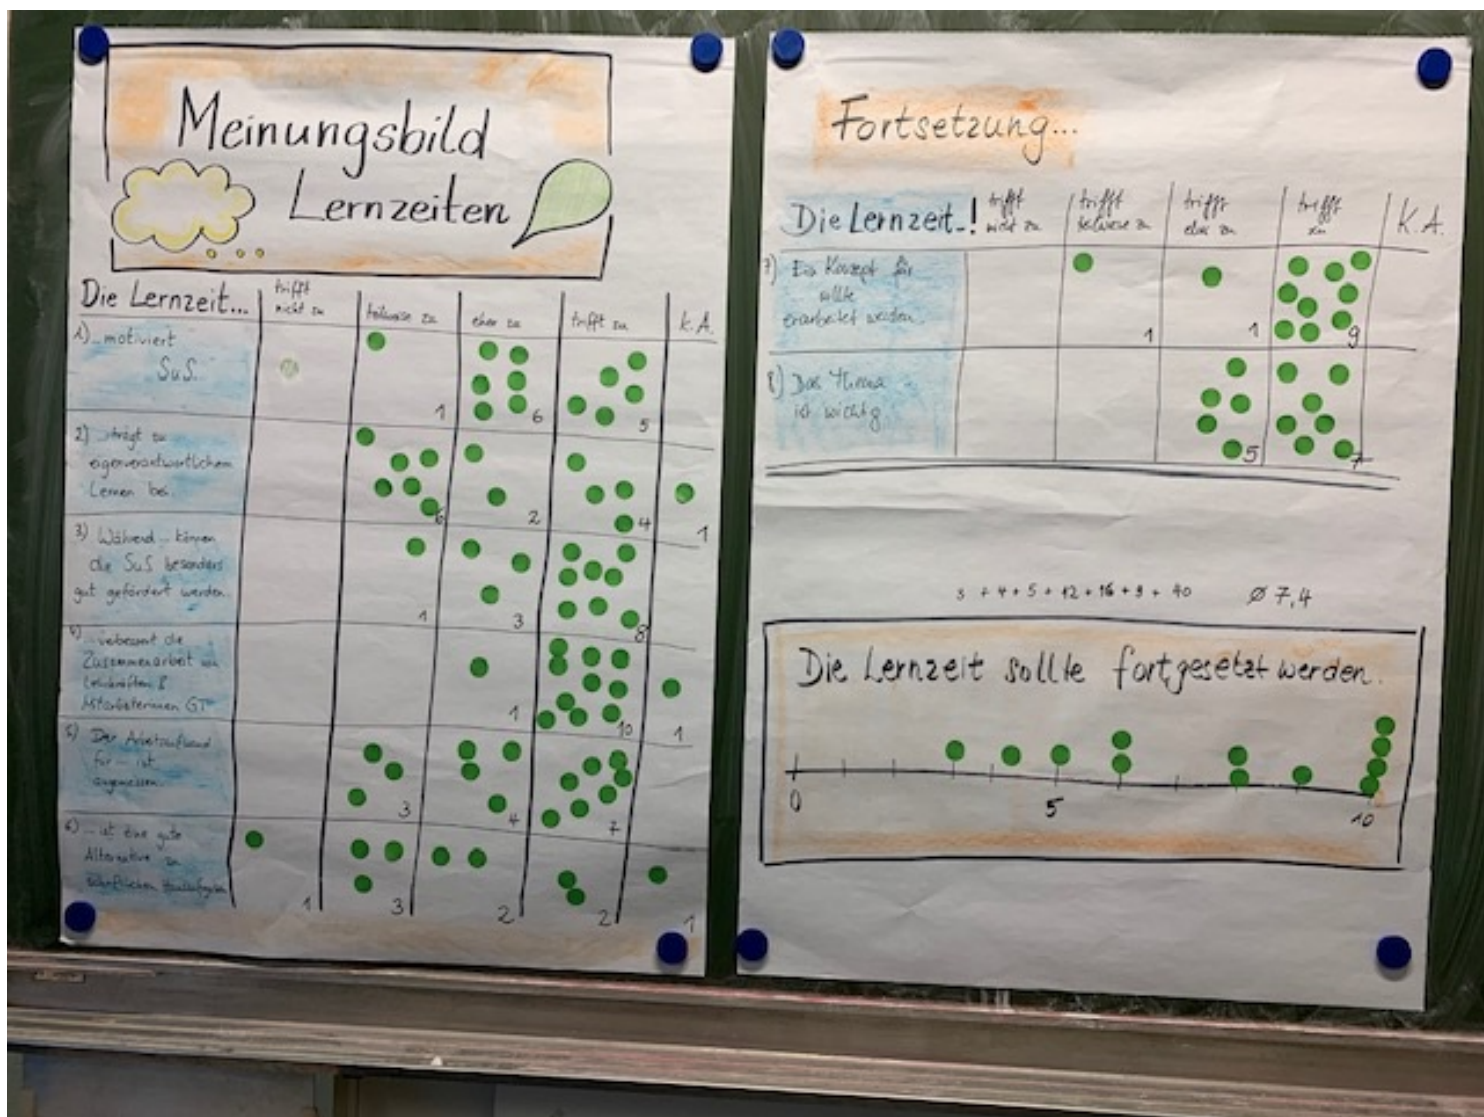 Meinungsbild
Lernzeiten
Die Lernzeit...
trifft
nicht zu
teilweise zu
eher zu
trifft zu
K.A.
1) ...motiviert
SuS.
1
6
5
2) ...trägt zu
eigenverantwortlichem
Lernen bei.
6
2
4
1
3) Während... können
die SuS besonders
gut gefördert werden.
1
3
8
4) ...verbessert die
Zusammenarbeit von
Lehrkräften &
Mitarbeiterinnen GT
1
10
1
5) Der Arbeitsaufwand
für ... ist
angemessen.
3
4
7
6) ...ist eine gute
Alternative zu
schriftlichen Hausaufgaben
1
3
2
2
1
Fortsetzung...
Die Lernzeit...!
trifft
nicht zu
trifft
teilweise zu
trifft
eher zu
trifft
zu
K.A.
7) Ein Konzept für
sollte
erarbeitet werden.
1
1
9
8) Das Thema
ist wichtig.
5
7
3 + 4 + 5 + 12 + 16 + 9 + 40 Ø 7,4
Die Lernzeit sollte fortgesetzt werden.
0 5 10